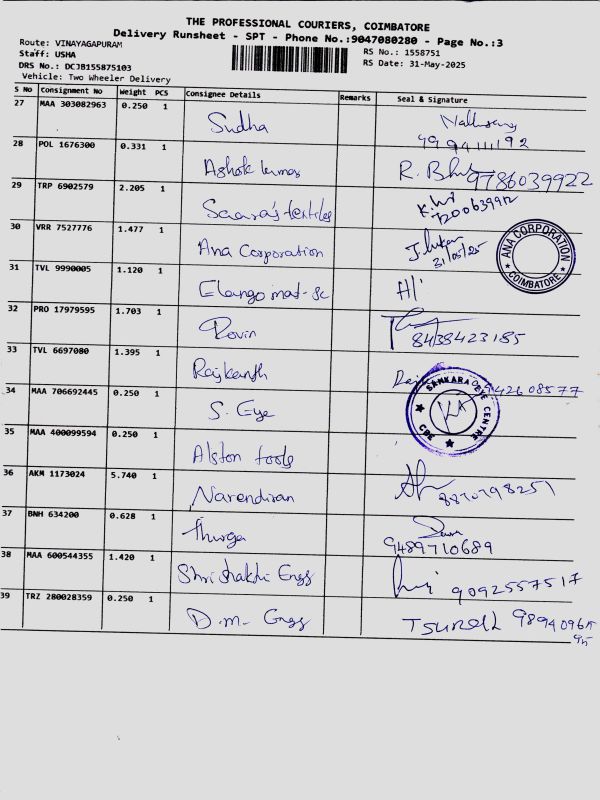 THE PROFESSIONAL COURIERS, COIMBATORE
Delivery Runsheet - SPT - Phone No.:9047080280 - Page No.:3
Route: VINAYAGAPURAM
Staff: USHA
DRS No.: DCJB155875103
Vehicle: Two Wheeler Delivery
RS No.: 1558751
RS Date: 31-May-2025
S No Consignment No Weight PCS Consignee Details Remarks Seal & Signature
27 MAA 303082963 0.250 1 Sudha
9994111192
28 POL 1676300 0.331 1 Ashok kumar R. 9786039922
29 TRP 6902579 2.205 1 Saara's textiles
30 VRR 7527776 1.477 1 Ana Corporation
31/05/25
ANA CORPORATION
COIMBATORE
31 TVL 9990005 1.120 1 Elango mat-sc
32 PRO 17979595 1.703 1 Rovin 8438423185
33 TVL 6697080 1.395 1 Rajkanth
34 MAA 706692445 0.250 1 S. Eye
SANKARA EYE CENTRE
CBE
35 MAA 400099594 0.250 1 Alston tools
36 AKM 1173024 5.740 1 Narendiran 8870798251
37 BNH 634200 0.628 1 Thurga
9489710689
38 MAA 600544355 1.420 1 Shri shakthi Engg 9092557517
39 TRZ 280028359 0.250 1 D.M- Engg